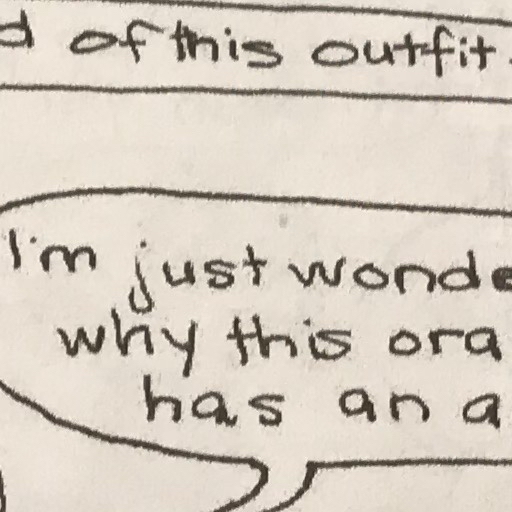 d of this outfit.
I'm just wonde
why this ora
has an a